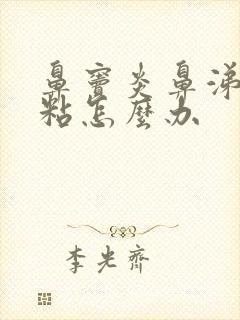 鼻窦炎鼻涕
粘怎麼办
李光齊